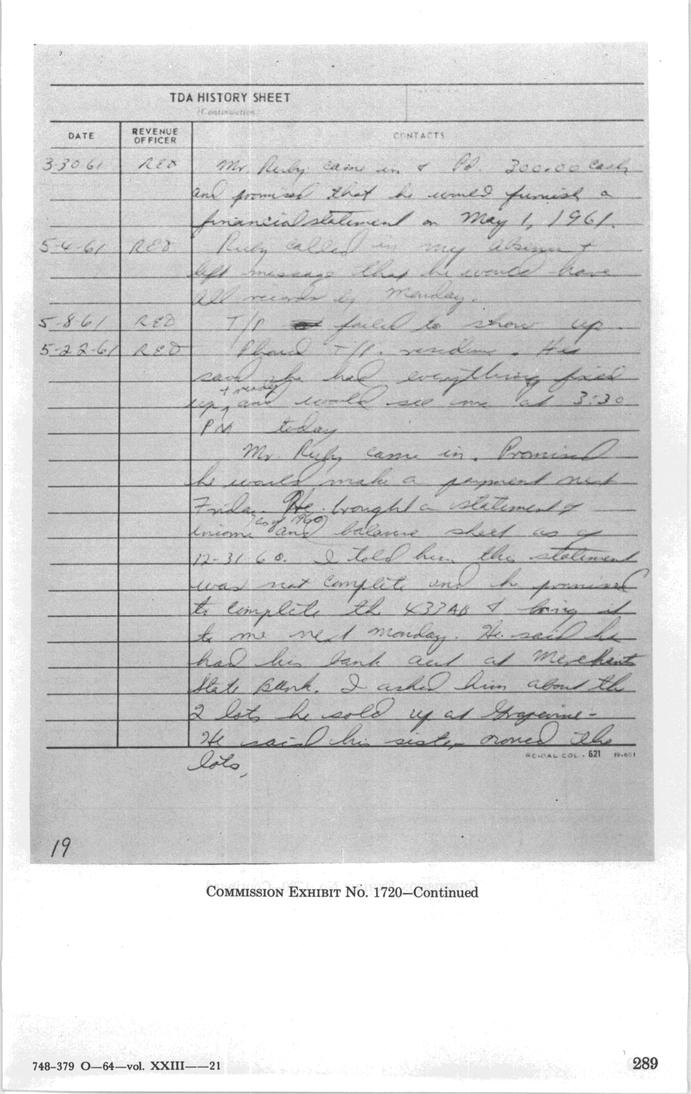 TDA HISTORY SHEET
(Continuation)
DATE
REVENUE OFFICER
CONTACTS
3-30-61 RED Mr. Ruby came in & Pd. 300.00 cash
and promised that he would furnish a
financial statement on May 1, 1961.
5-4-61 RED Ruby called in my absence &
left message that he would have
all records by Monday.
5-8-61 RED T/P failed to show up.
5-22-61 RED Phoned T/P. residence. He
said he had everything fixed
+ ready
up, and would see me at 3:30
PM today
Mr. Ruby came in. Promised
he would make a payment next
Friday. He brought a statement of
income and balance sheet as of
12-31-60. I told him the statement
was not complete and he promised
to complete the 433AB & bring it
to me next Monday. He said he
had his bank acct at Merchants
State Bank. I asked him about the
2 lots he sold up at Grapevine-
He said his sister owned the
lots,
19
COMMISSION EXHIBIT NO. 1720—Continued
748-379 O—64—vol. XXIII——21
289